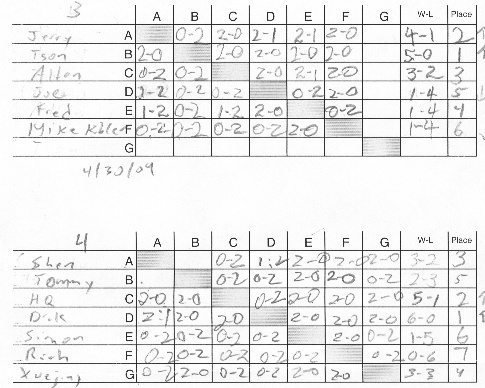 3
A B C D E F G W-L Place
Jerry A 0-2 2-0 2-1 2-1 2-0 4-1 2
Tson B 2-0 2-0 2-0 2-0 2-0 5-0 1
Allen C 0-2 0-2 2-0 2-1 2-0 3-2 3
Joe D 1-2 0-2 0-2 0-2 2-0 1-4 5
Fred E 1-2 0-2 1-2 2-0 0-2 1-4 4
Mike F 0-2 0-2 0-2 0-2 2-0 1-4 6
G
4/30/09
4
A B C D E F G W-L Place
Shen A 0-2 1-2 2-0 2-0 2-0 3-2 3
Tommy B 0-2 0-2 2-0 2-0 0-2 2-3 5
HQ C 2-0 2-0 0-2 2-0 2-0 2-0 5-1 2
Dick D 2-1 2-0 2-0 2-0 2-0 2-0 6-0 1
Simon E 0-2 0-2 0-2 0-2 2-0 0-2 1-5 6
Rich F 0-2 0-2 0-2 0-2 0-2 0-2 0-6 7
G 0-2 2-0 0-2 0-2 2-0 2-0 3-3 4